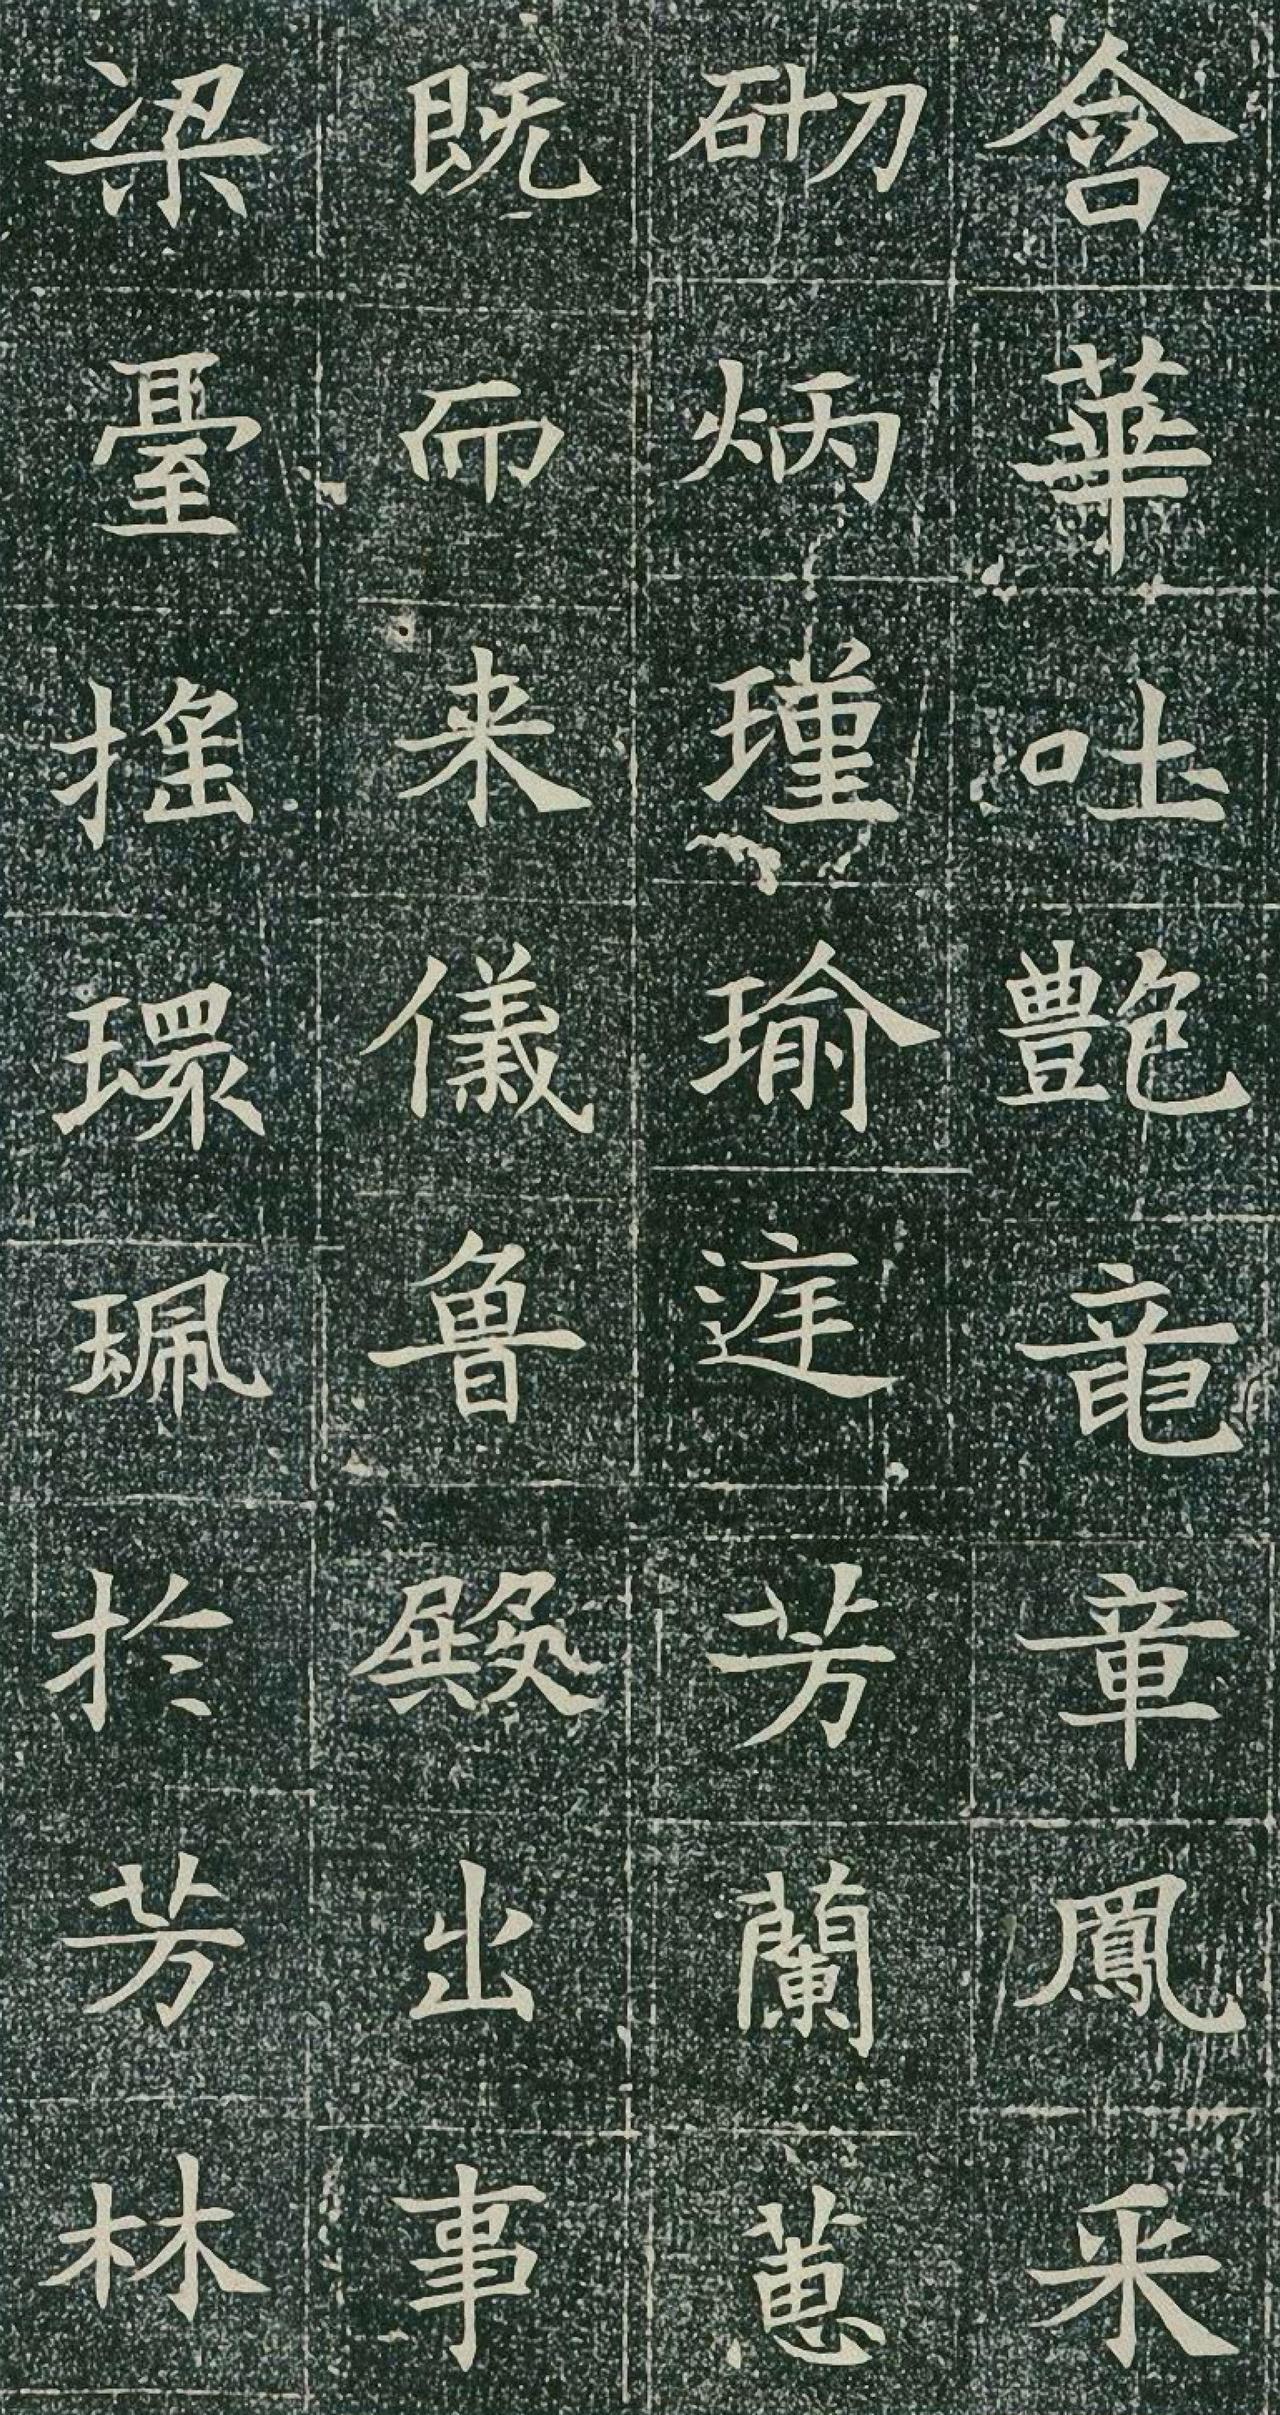 含華吐艶竜章鳳采
砌炳瑾瑜庭芳蘭蕙
既而来儀魯殿出事
梁臺搖環珮於芳林